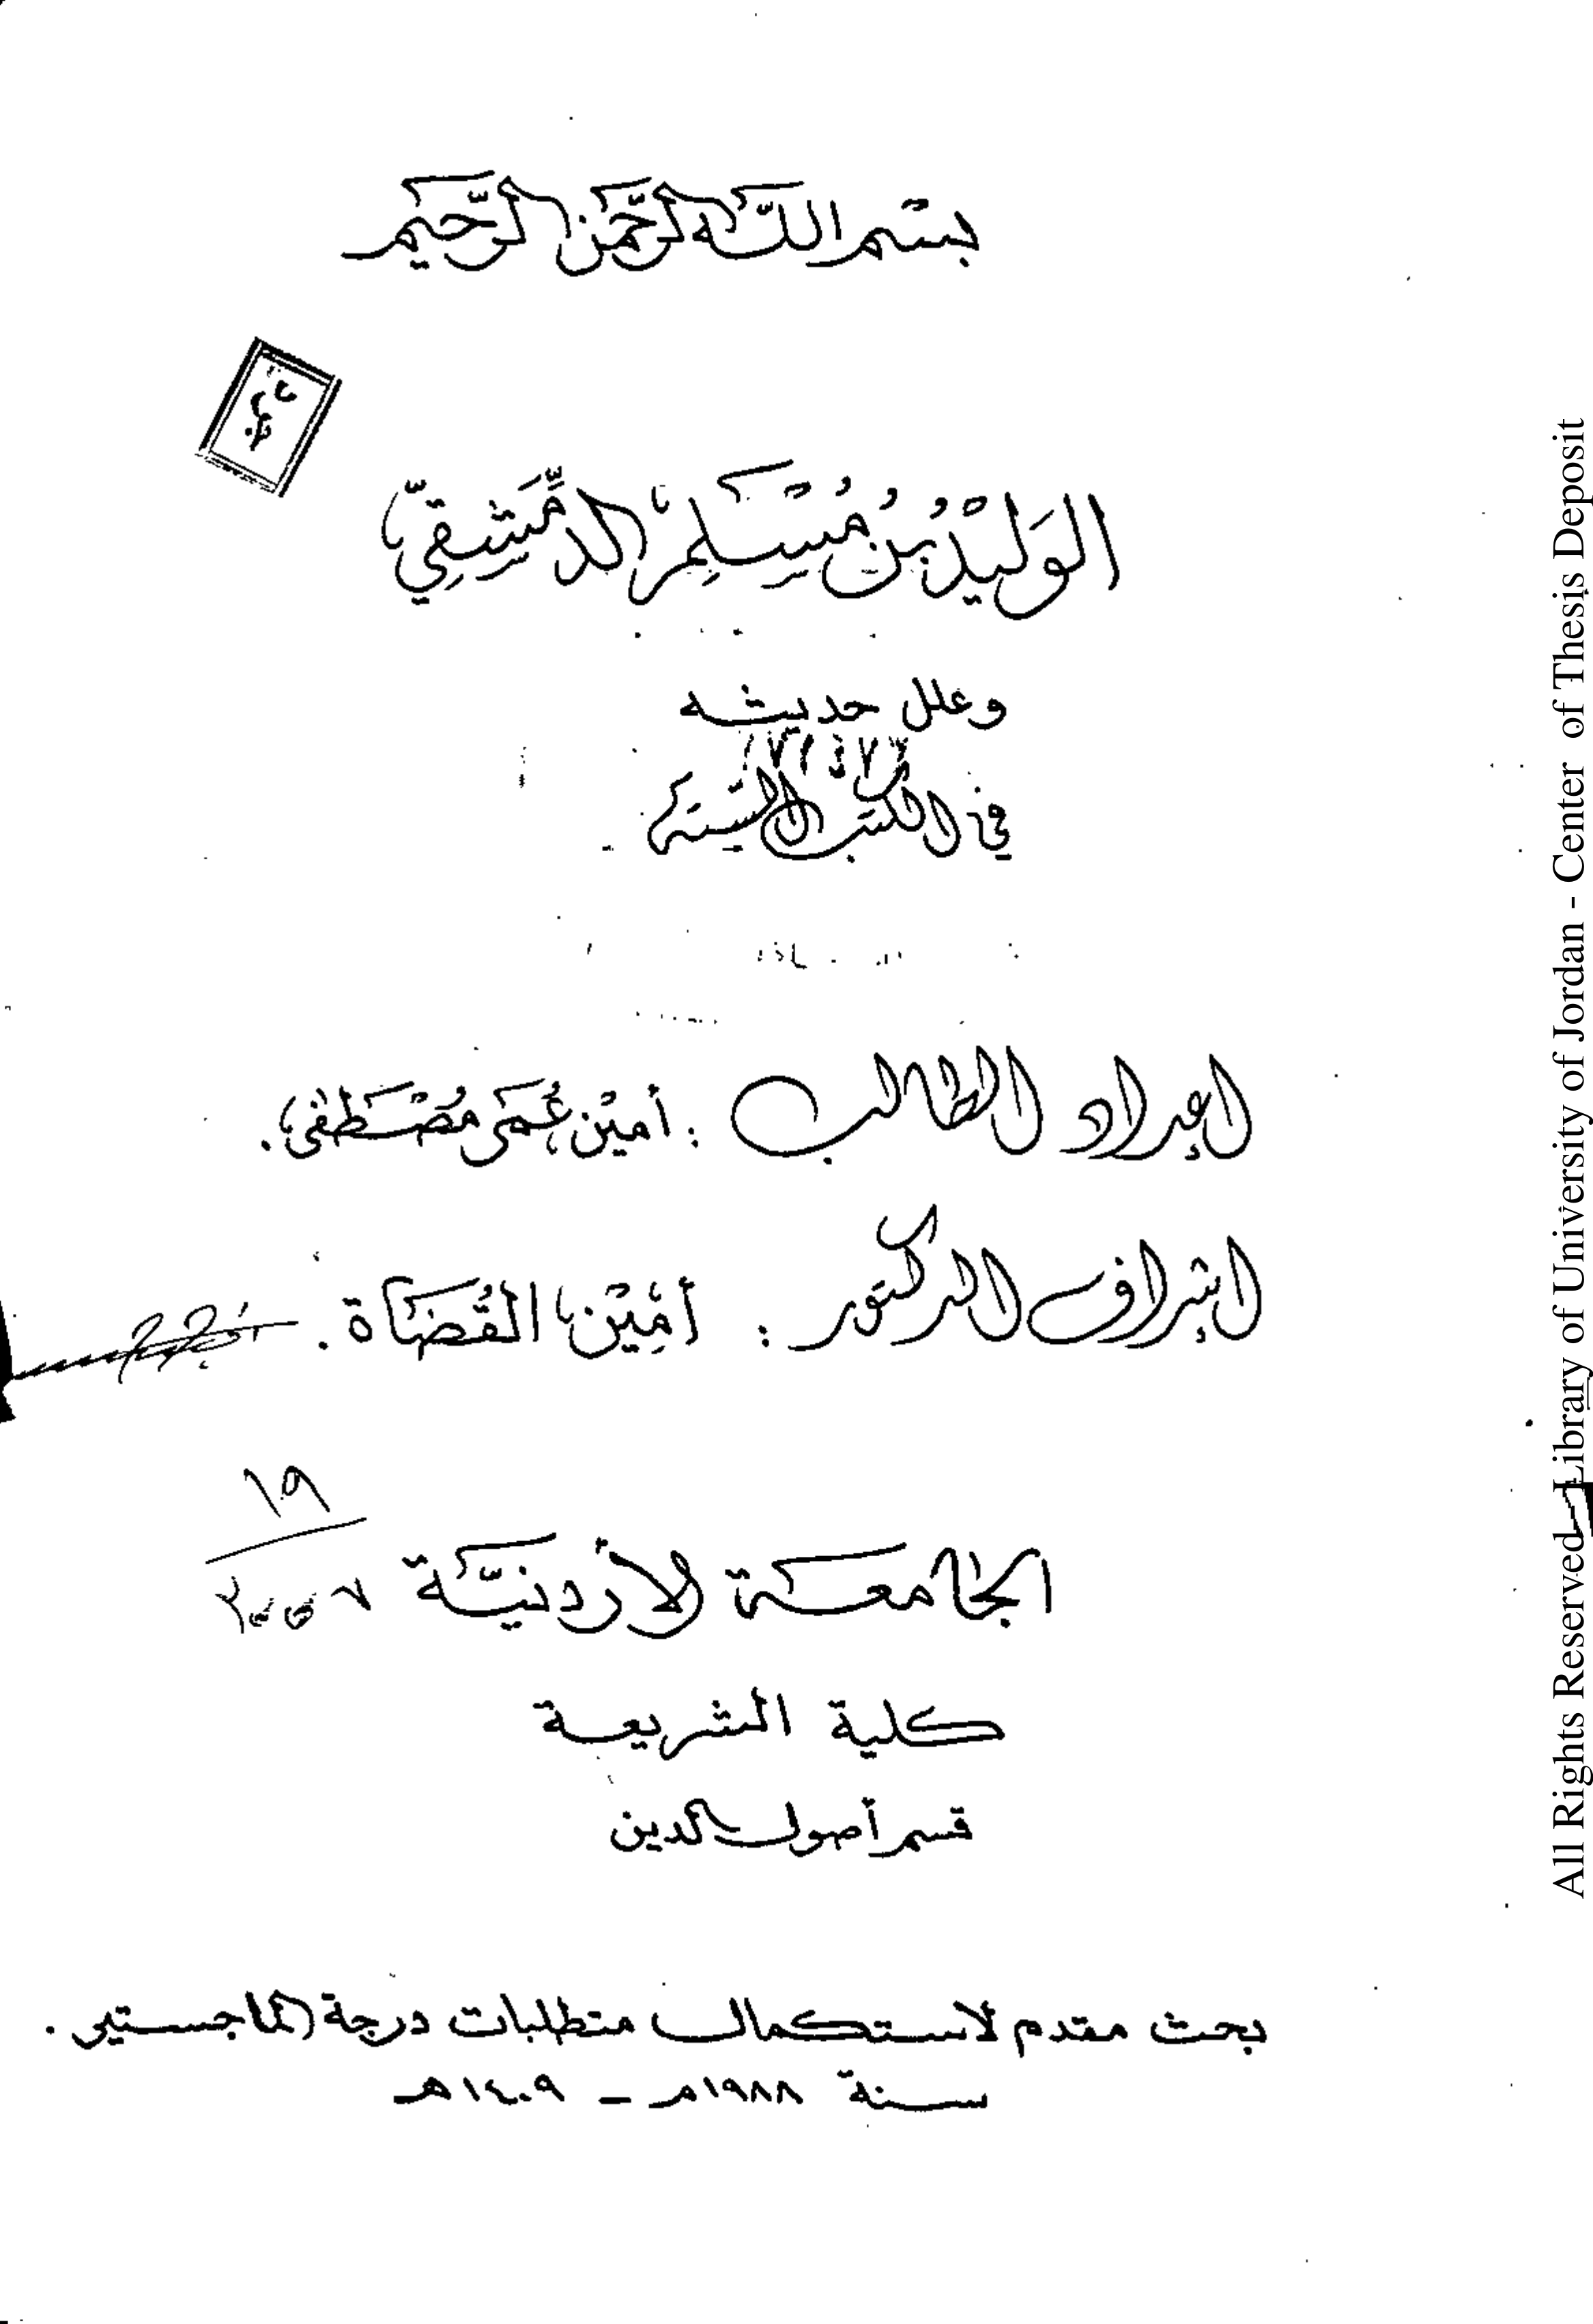 بسم الله الرحمن الرحيم
الوَليْدُ بنُ مُسْلِم الدِّمَشقِيّ
وعلل حديثه
في الكتب الستة
اعداد الطالب : أمين عُمَر مُصْطَفى.
اشراف الدكتور : أمين القُضَاة.
١٩
الجامعة الأردنيّة
كلية الشريعة
قسم أصول الدين
بحث مقدم لاستكمال متطلبات درجة الماجستير .
سنة ١٩٨٨م – ١٤٠٩هـ
All Rights Reserved - Library of University of Jordan - Center of Thesis Deposit